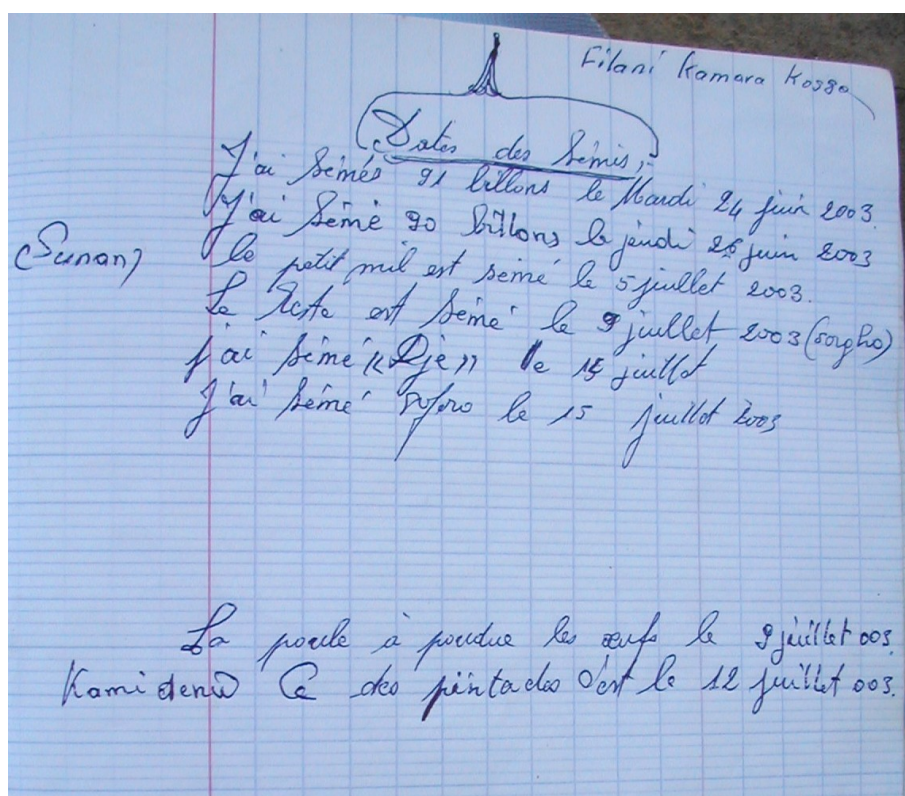 Filani Kamara Kosso
Dates des Semis,
J'ai sémés 91 billons le Mardi 24 juin 2003.
J'ai sémé 90 billons le jeudi 26 juin 2003
(Sunan) le petit mil est semé le 5 juillet 2003.
Le Reste est sémé le 9 juillet 2003 (sorgho)
j'ai sémé "Dje" le 15 juillet
J'ai sémé le 15 juillet 2003
La poule à pondue les œufs le 9 juillet 003.
Kami denw Ce des pintades c'est le 12 juillet 003.